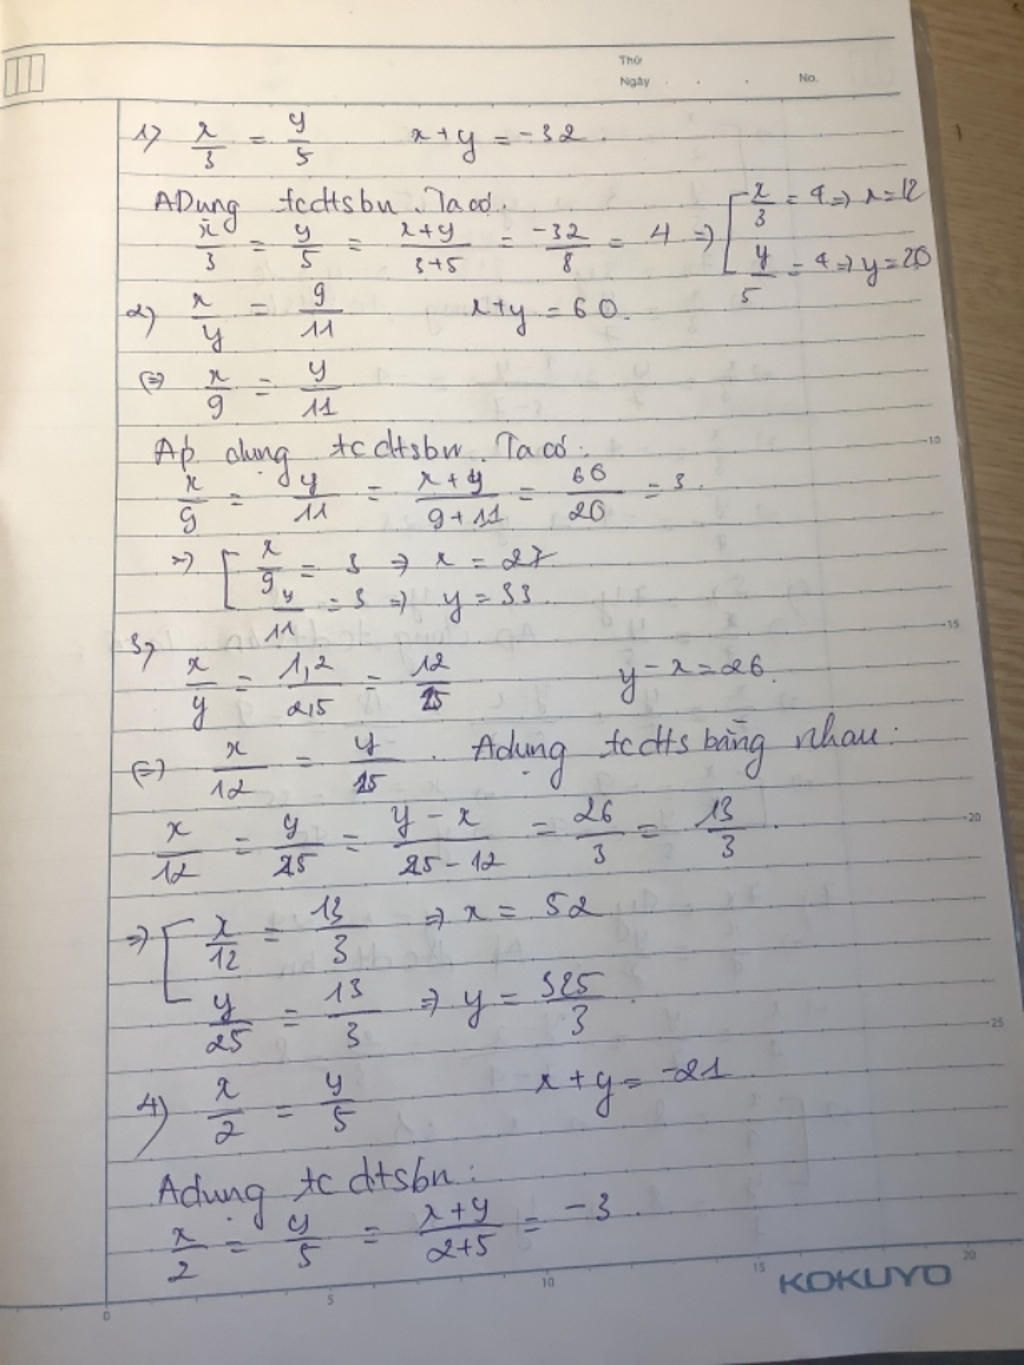 Thứ
Ngày . . . No.
1) x/3 = y/5 x+y = -32.
ADụng tcdtsbn. Ta có.
x/3 = y/5 = x+y/3+5 = -32/8 = 4 => [ x/3 = 4 => x = 12
y/5 = 4 => y = 20
2) x/y = 9/11 x+y = 60.
(=> x/9 = y/11
Áp dụng tcdtsbn. Ta có:
x/9 = y/11 = x+y/9+11 = 60/20 = 3.
=> [ x/9 = 3 => x = 27
y/11 = 3 => y = 33
3) x/y = 1,2/2,5 = 12/25 y - x = 26.
(=) x/12 = y/25 . Adụng tcdts bằng nhau:
x/12 = y/25 = y - x/25 - 12 = 26/3 = 13/3
=> [ x/12 = 13/3 => x = 52
y/25 = 13/3 => y = 325/3
4) x/2 = y/5 x+y = -21
Adụng tcdtsbn:
x/2 = y/5 = x+y/2+5 = -3
KOKUYO
10
15
20
25
0 5 10 15 20